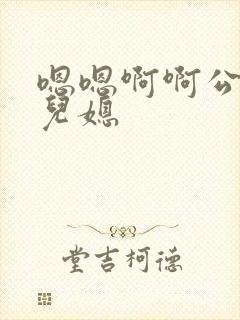 嗯嗯啊啊公
兒媳
堂吉柯德